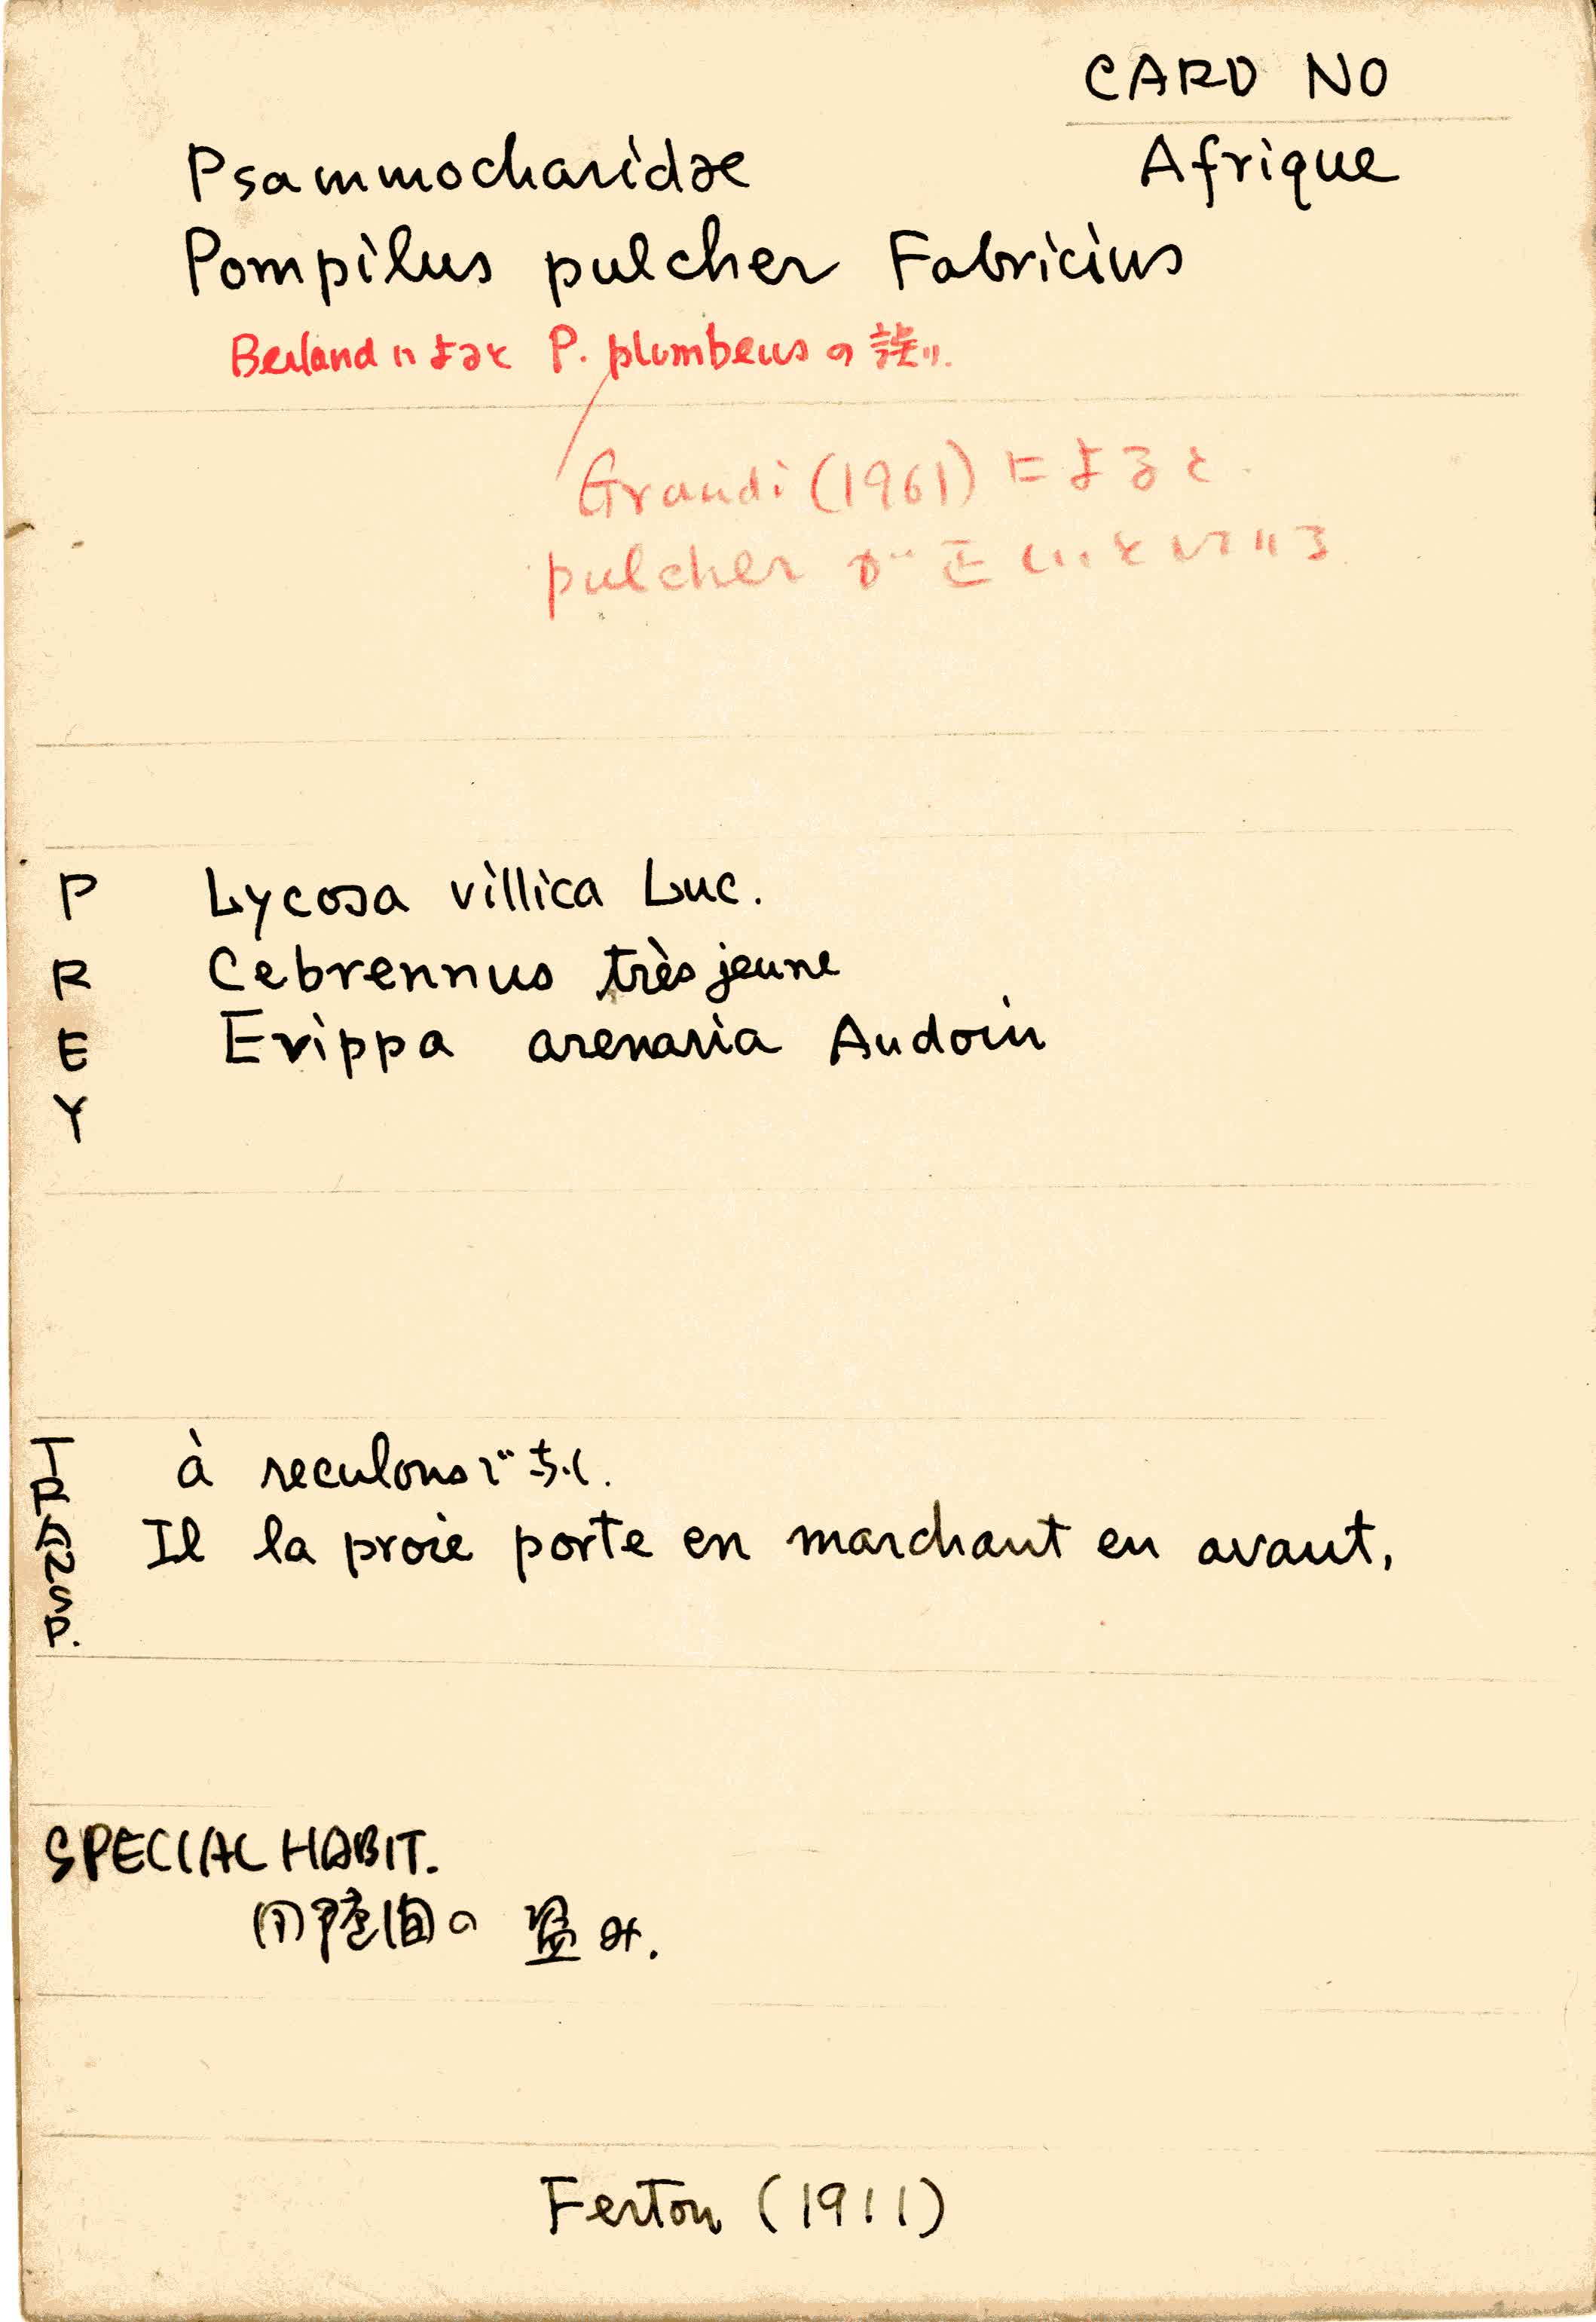 CARD NO
Afrique
Psammocharidae
Pompilus pulcher Fabricius
Berland によると P. plumbeus の誤り.
Grandi (1961) によると
pulcher が正しいとしている
PREY
Lycosa villica Luc.
Cebrennus très jeune
Evippa arenaria Audoin
TRANSP.
à reculons でなく.
Il la proie porte en marchant en avant,
SPECIAL HABIT.
同種間の盗み.
Ferton (1911)